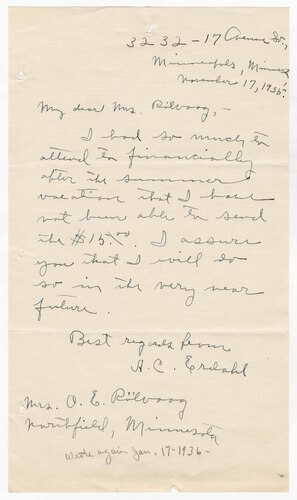 3232-17 Avenue So.,
Minneapolis, Minnesota
November 17, 1935.
My dear Mrs. Rölvaag,-
I had so much to
attend to financially
after the summer
vacation that I have
not been able to send
the $15.00. I assure
you that I will do
so in the very near
future.
Best regards from
A. C. Erdahl
Mrs. O. E. Rölvaag
Northfield, Minnesota
Wrote again Jan. 17-1936-